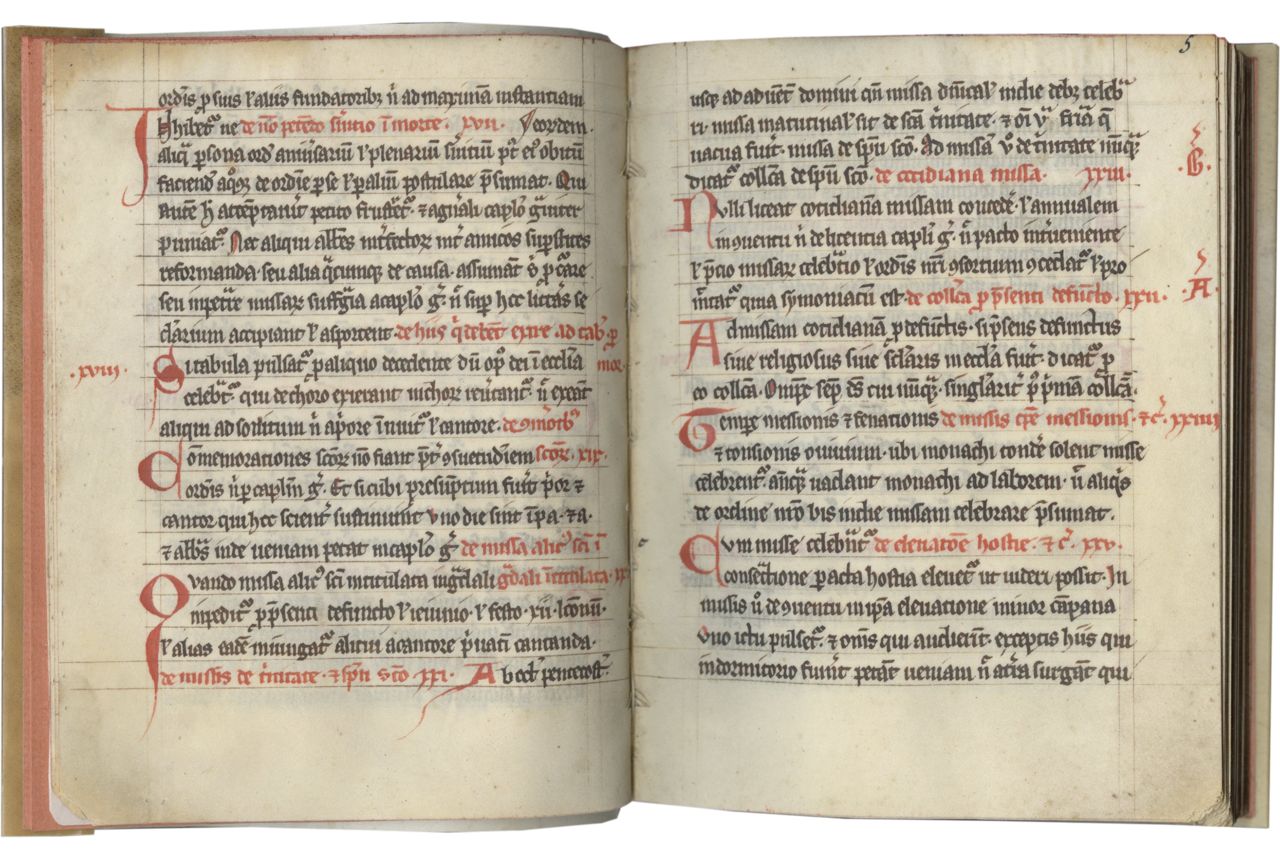 ordīs ꝑ suis ł aliis fundatoribꝫ nͥ ad maximā instantiam
Jnhibetᷣ ne de nō petendo s͛uitio ī morte. xvii. ſcordem.
aliqͣ ꝑsona ordīs
faciendū de ordīe ꝑ se ł ꝑ aliū postulare p̄sumat. Qui
autē
puniatᷣ. Nec aliqui amicos suꝑstites
reformanda. seu alia de causa. assumāt
seu inpetͣre missarꝝ a capl̓o se
accipiant ł asportent de hiis qͥ debēt exire ad tab̓. ꝑ
.xviii. Si tabula pulsatᷣ ꝑ aliquo decedente dū opꝰ dei ī ecclīa mor.
celebratᷣ. qui de choro exierant in chorꝝ nͥ exeāt
aliqui ad sonitum nͥ a pͥore ł cantore. de ꝯmemoratōībꝰ
Cōmemorationes scōrꝝ nō fiant p̄t͛ ꝯsuetudinem scōrꝝ. xix.
ordīs nͥ ꝑ capl̓m g̓. Et sicubi presumptum fu͛it pͥor ⁊
cantor qui hec scient͛ sustinu͛int vno die sint ī pa. ⁊ a.
⁊ abbās inde ueniam petat in capl̓o g̓ de missa alicꝰ scī ī
Quando missa alicꝰ scī intitulata in gͣdali gͣdali ītitulata. xx
inpeditᷣ ꝑ p̄senti defuncto ł ieiunio. ł festo. xii. lc̄onū.
ł alias eadē iniūgatᷣ alicui a cantore pͥuatī cantanda.
de missis de tͥnitate. ⁊ spū scō xxi. Ab oct̓ pentecost̓.
5
usqꝫ ad aduētū domini qn̄ missa dn̄ical̓ in die debꝫ celebͣ
ri. missa matutinal̓ sit de scā tͥnitate. ⁊ oī vͣ fͥia q̄
uacua fu͛it. missa de spū scō. Ad missā v͛o de tͥnitate nūqͣ
dicatᷣ collc̄a de spū scō. de cotidiana missa. xxiii. .B.
Nulli liceat cotidianā missam concede͛. ł annualem
in ꝯuentu nͥ de licentia capl̓i g̓. nͥ pacto int͛ueniente
ł p̄cio missarꝝ celebͣtio ł ordīs nr̄i ꝯsortium ꝯcedatᷣ ł pro
mittatᷣ quia symoniacū est. de collc̄a ꝑ p̄senti defuncto. xxii. .A.
Ad missam cotidianā ꝑ defūctis. si p̄sens defunctus
siue religiosus siue sclārīs in ecclīa fu͛it. dicatᷣ ꝑ
eo collc̄a. Omp̄s semp̄ ds̄ cui nūqͣ. singlarit͛ pꝰ pͥmā collc̄ā.
Tempe messionis ⁊ fenationis de missis tp̄e messionis. ⁊ c̓. xxiiii
⁊ tonsionis ouium. ubi monachi solent misse
celebrentᷣ. anteqͣ uadant monachi ad laborem. nͥ aliqͥs
de ordine nr̄o bis in die missam celebrare p̄sumat.
Cum misse celebn̄tᷣ de eleuatōe hostie. ⁊ c̓. xxv.
consecͣtione peracta hostia eleuetᷣ ut uideri possit. In
missis u͛o de ꝯuentu in ipa eleuatione minor cāpana
vno ictu pulsetᷣ. ⁊ om̄s qui audierīt. exceptis hiis qui
in dormitorio fu͛int petāt ueniam nͥ at̄ra surgāt qui